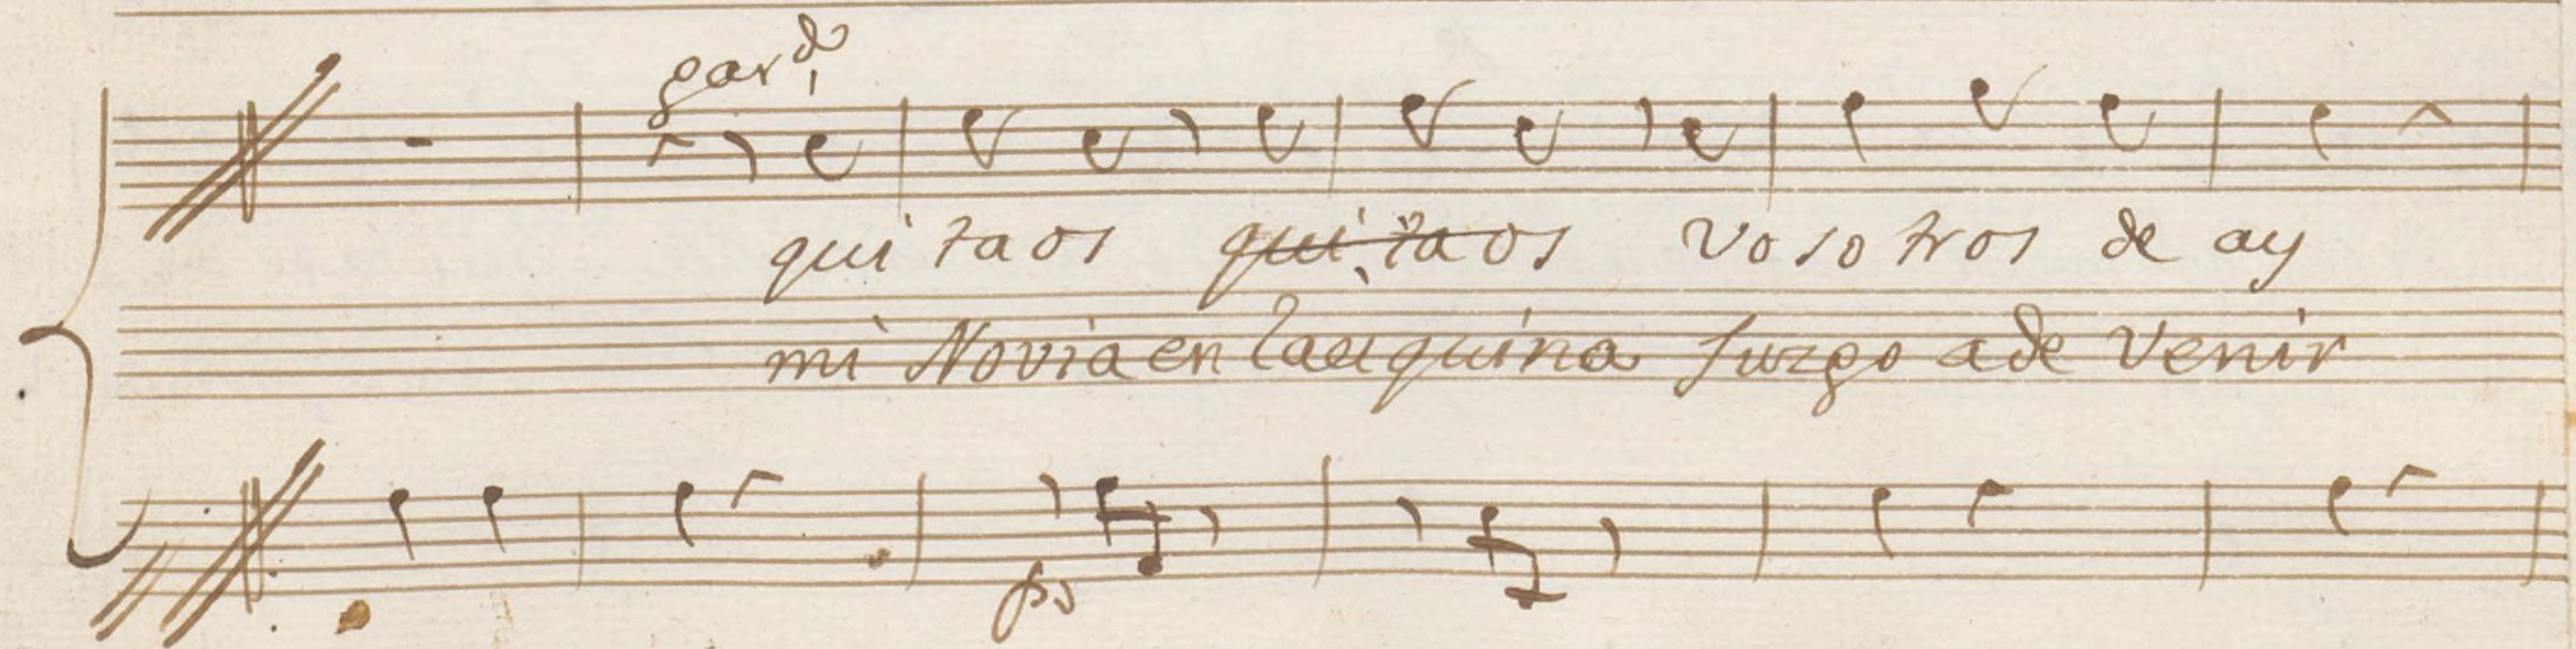 gar.do
qui ta os qui ta os vo so tros de ay
mi Novia en la esquina Juzgo a de venir
po